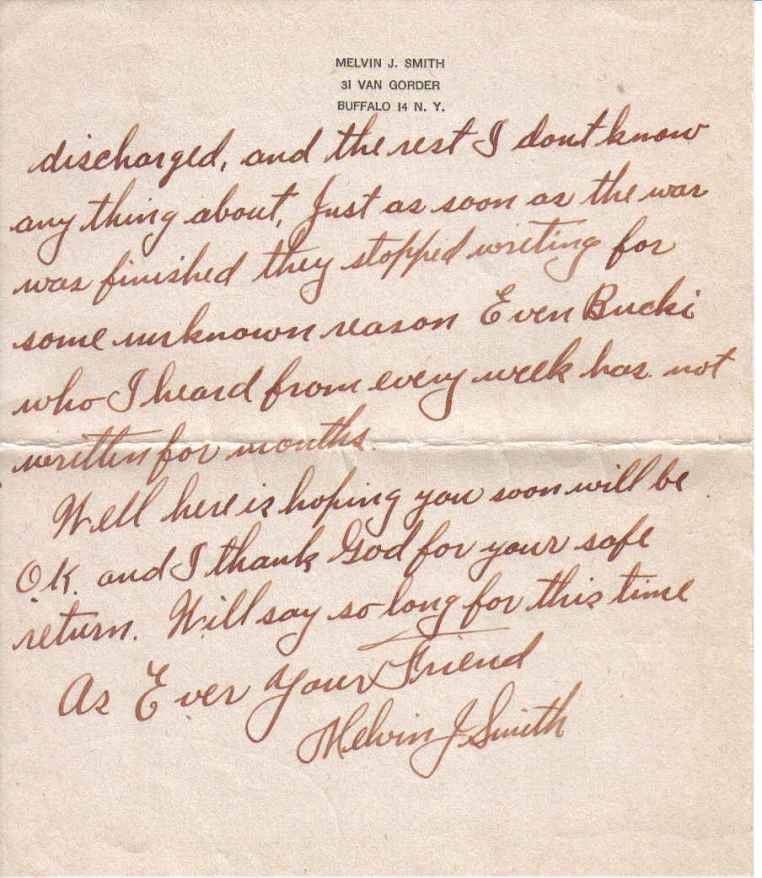 MELVIN J. SMITH
31 VAN GORDER
BUFFALO 14 N. Y.
discharged, and the rest I dont know
any thing about, Just as soon as the war
was finished they stopped writing for
some unknown reason Even Bucki
who I heard from every week has not
written for months.
Well here is hoping you soon will be
O.K. and I thank God for your safe
return. Will say so long for this time
As Ever Your Friend
Melvin J Smith